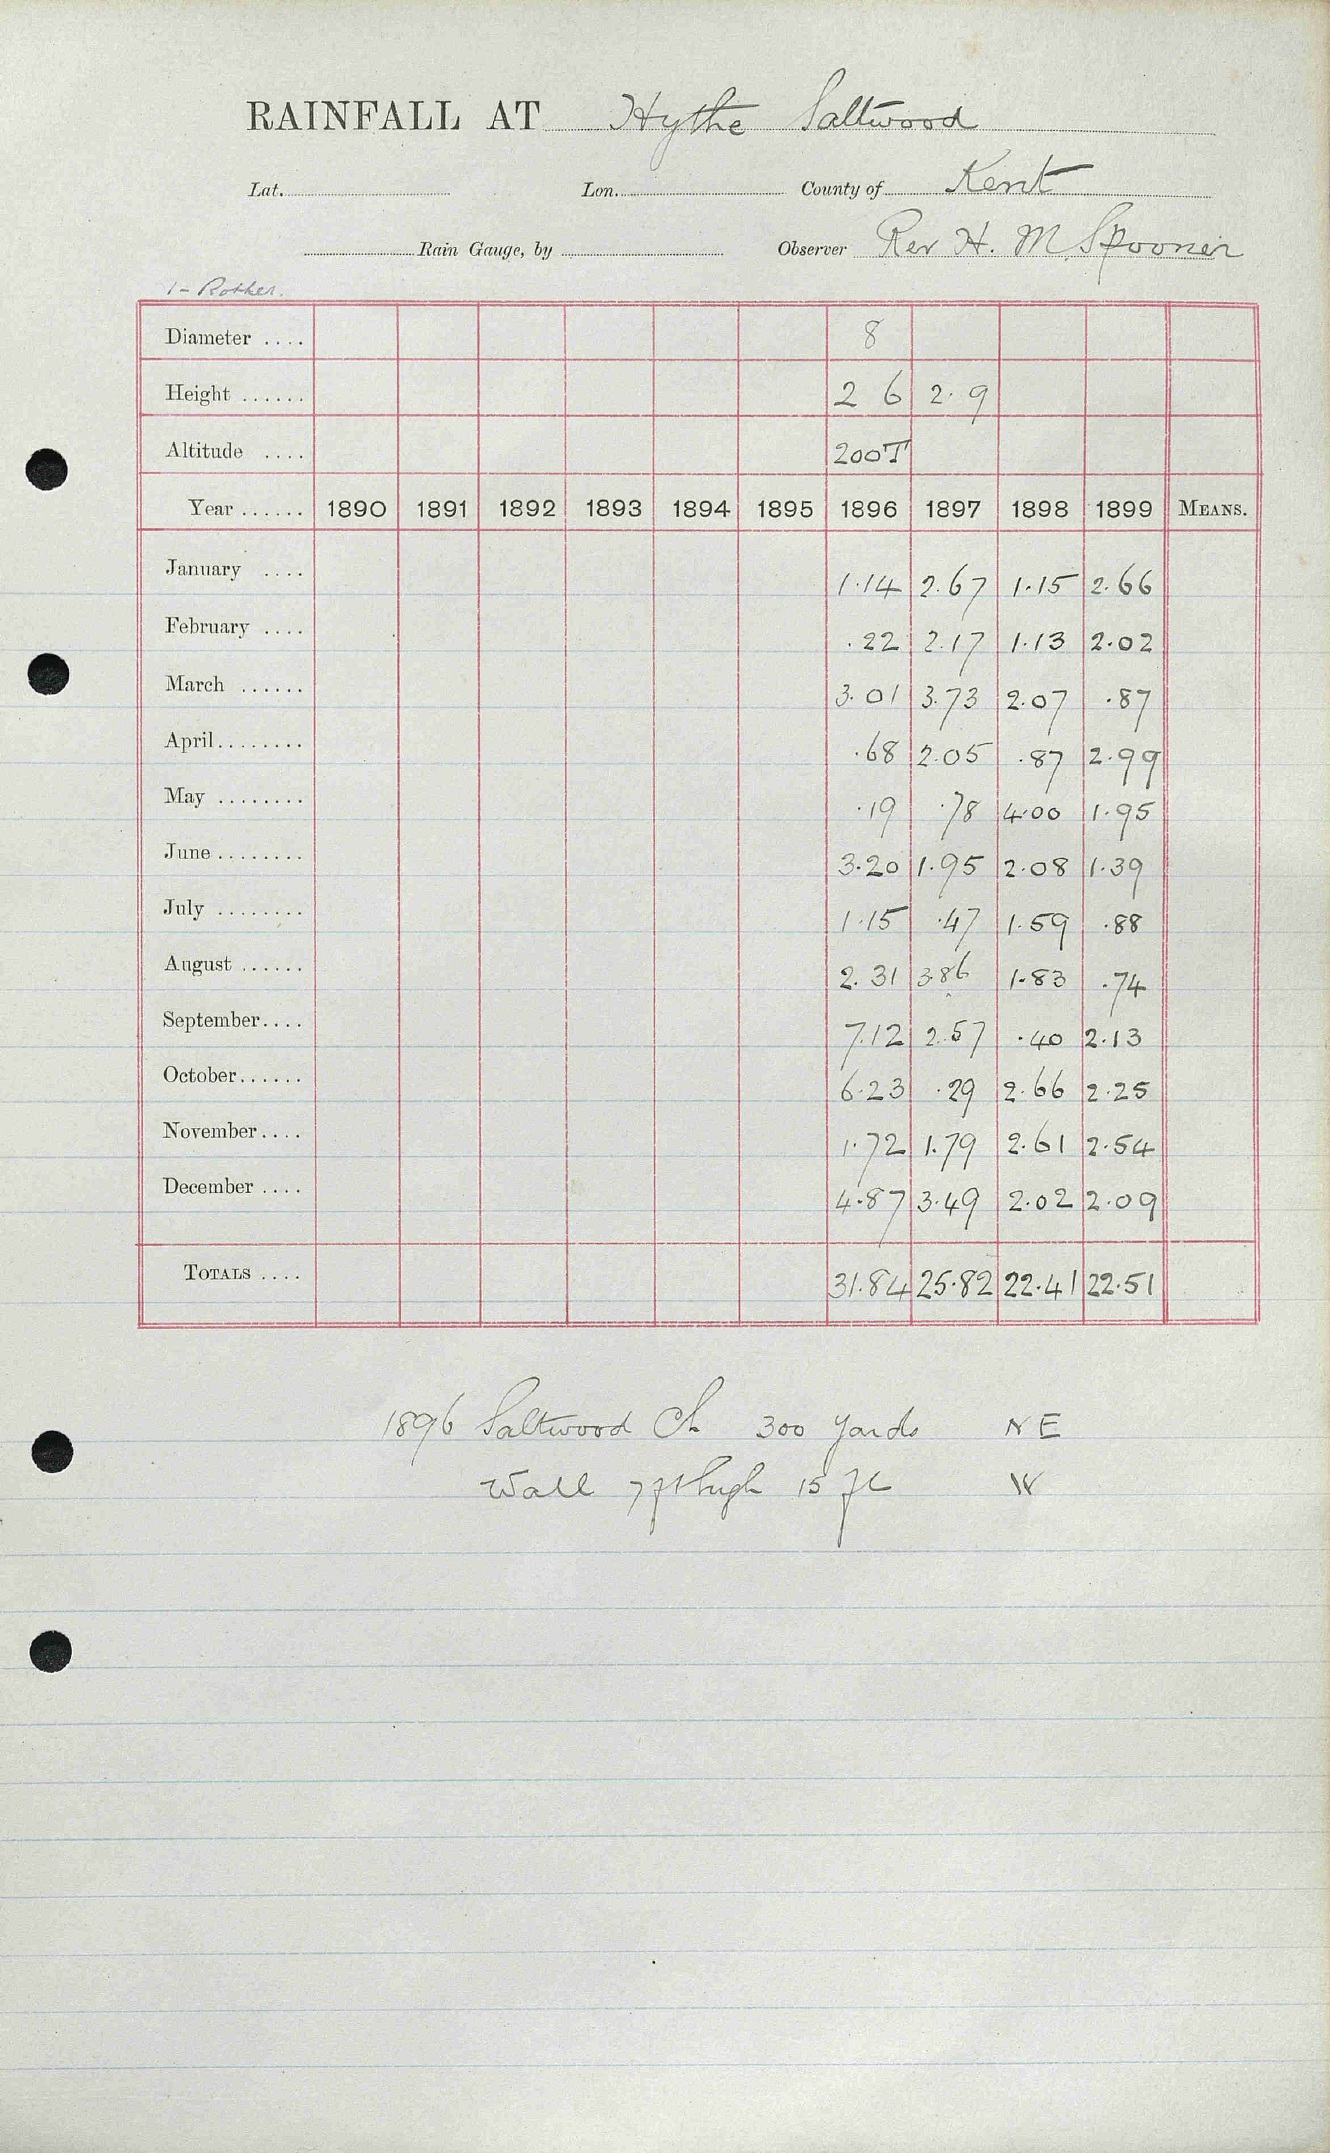 RAINFALL AT Hythe Saltwood
Lat. Lon. County of Kent
Rain Gauge, by Observer Rev H. M. Spooner
1- Rother.
Diameter .... 8
Height ...... 2 6 2.9
Altitude .... 200T
Year ...... 1890 1891 1892 1893 1894 1895 1896 1897 1898 1899 MEANS.
January .... 1.14 2.67 1.15 2.66
February .... .22 2.17 1.13 2.02
March ...... 3.01 3.73 2.07 .87
April........ .68 2.05 .87 2.99
May ........ .19 .78 4.00 1.95
June ........ 3.20 1.95 2.08 1.39
July ........ 1.15 .47 1.59 .88
August ...... 2.31 3.86 1.83 .74
September.... 7.12 2.57 .40 2.13
October...... 6.23 .29 2.66 2.25
November.... 1.72 1.79 2.61 2.54
December .... 4.87 3.49 2.02 2.09
TOTALS .... 31.84 25.82 22.41 22.51
1896 Saltwood Ch 300 yards NE
Wall 7ft high 15 ft W